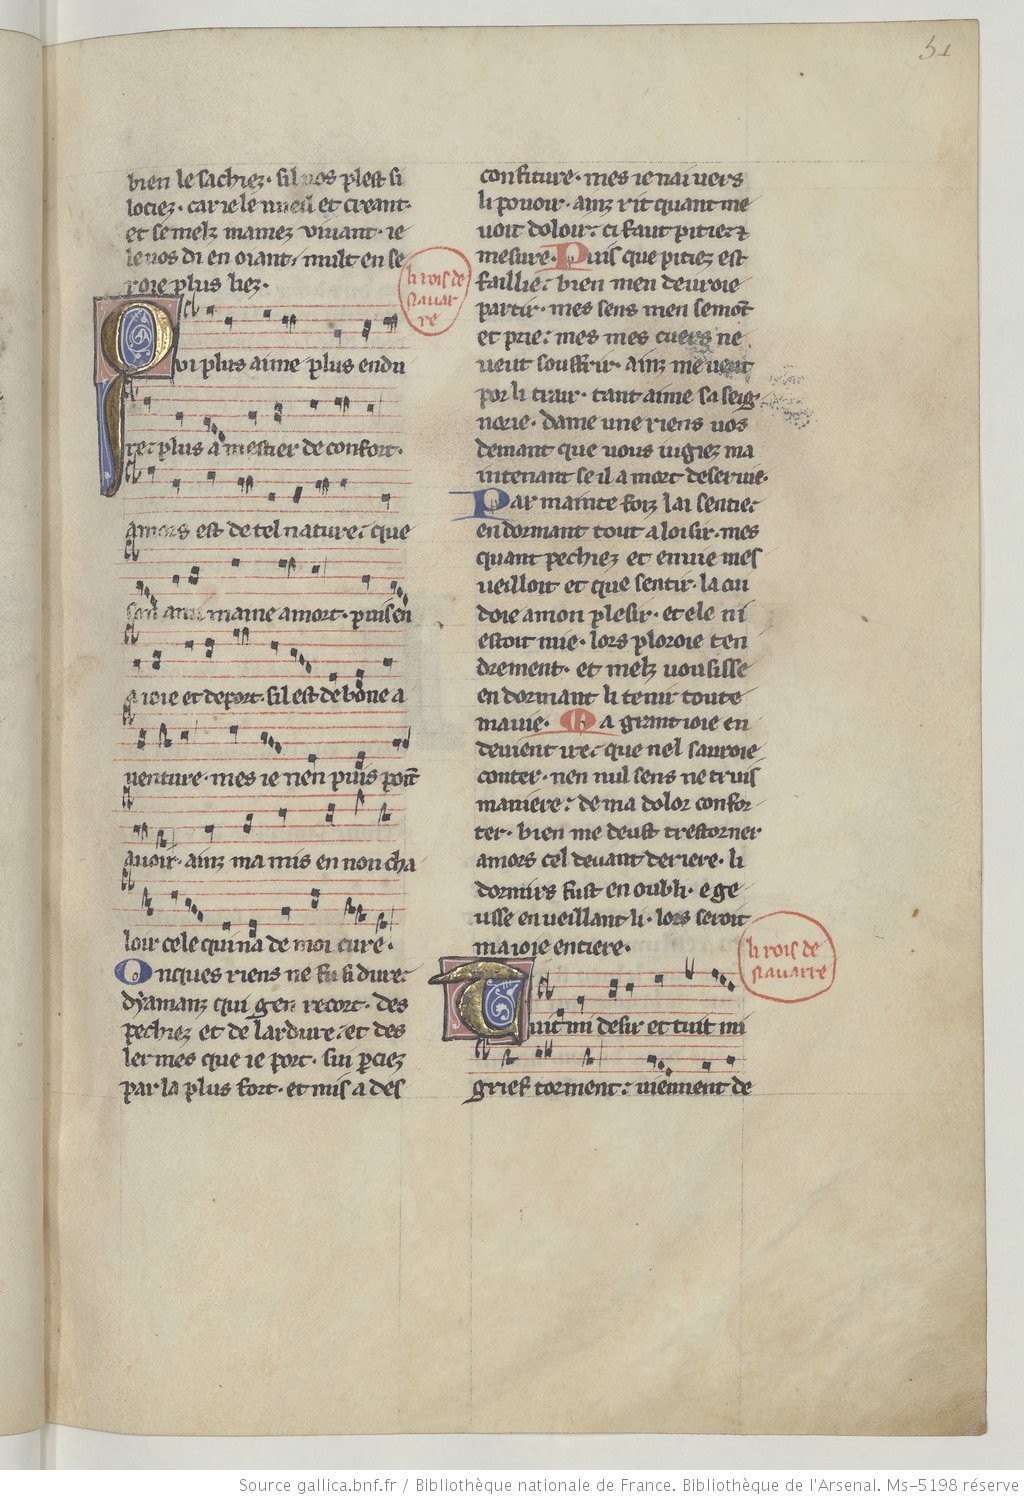 51
bien le sachiez· sil vos plest si
lociez· car ie le vueil et creant·
et se melz mamez vivant· ie
le vos di en oiant· mult en se
roie plus liez·
li rois de
navar
re
Qvi plus aime plus endu
re: plus a mestier de confort·
amors est de tel nature: que
son ami maine a mort· puis en
a ioie et deport· sil est de bone a
venture· mes ie nen puis point
avoir· ainz ma mis en non cha
loir cele qui na de moi cure·
Onques riens ne fu si dure:
dyamanz qui gen recort· des
pechiez et de lardure: et des
lermes que ie port· sui perciez
par la plus fort· et mis a des
confiture· mes ie nai vers
li pouoir· ainz rit quant me
voit doloir: ci faut pitiez ⁊
mesure· Puis que pitiez est
faillie: bien men devroie
partir· mes sens men semont
et prie: mes mes cuers ne
veut souffrir· ainz me veut
por li trair· tant aime sa seig
norie· dame une riens vos
demant que vous iugiez ma
intenant se il a mort deservie·
Par mainte foiz lai sentie:
en dormant tout a loisir· mes
quant pechiez et envie mes
veilloit et que sentir· la cui
doie a mon plesir· et ele ni
estoit mie· lors ploroie ten
drement· et melz vousisse
en dormant li tenir toute
ma vie· La grant ioie en
devient ire: que nel sauroie
conter· nen nul sens ne truis
maniere: de ma dolor confor
ter· bien me deust trestorner
amors cel devant deriere· li
dormirs fust en oubli· e ge
usse en veillant li· lors seroit
ma ioie entiere·
li rois de
navarre
Tuit mi desir et tuit mi
grief torment: viennent de
Source gallica.bnf.fr / Bibliothèque nationale de France. Bibliothèque de l'Arsenal. Ms-5198 réserve